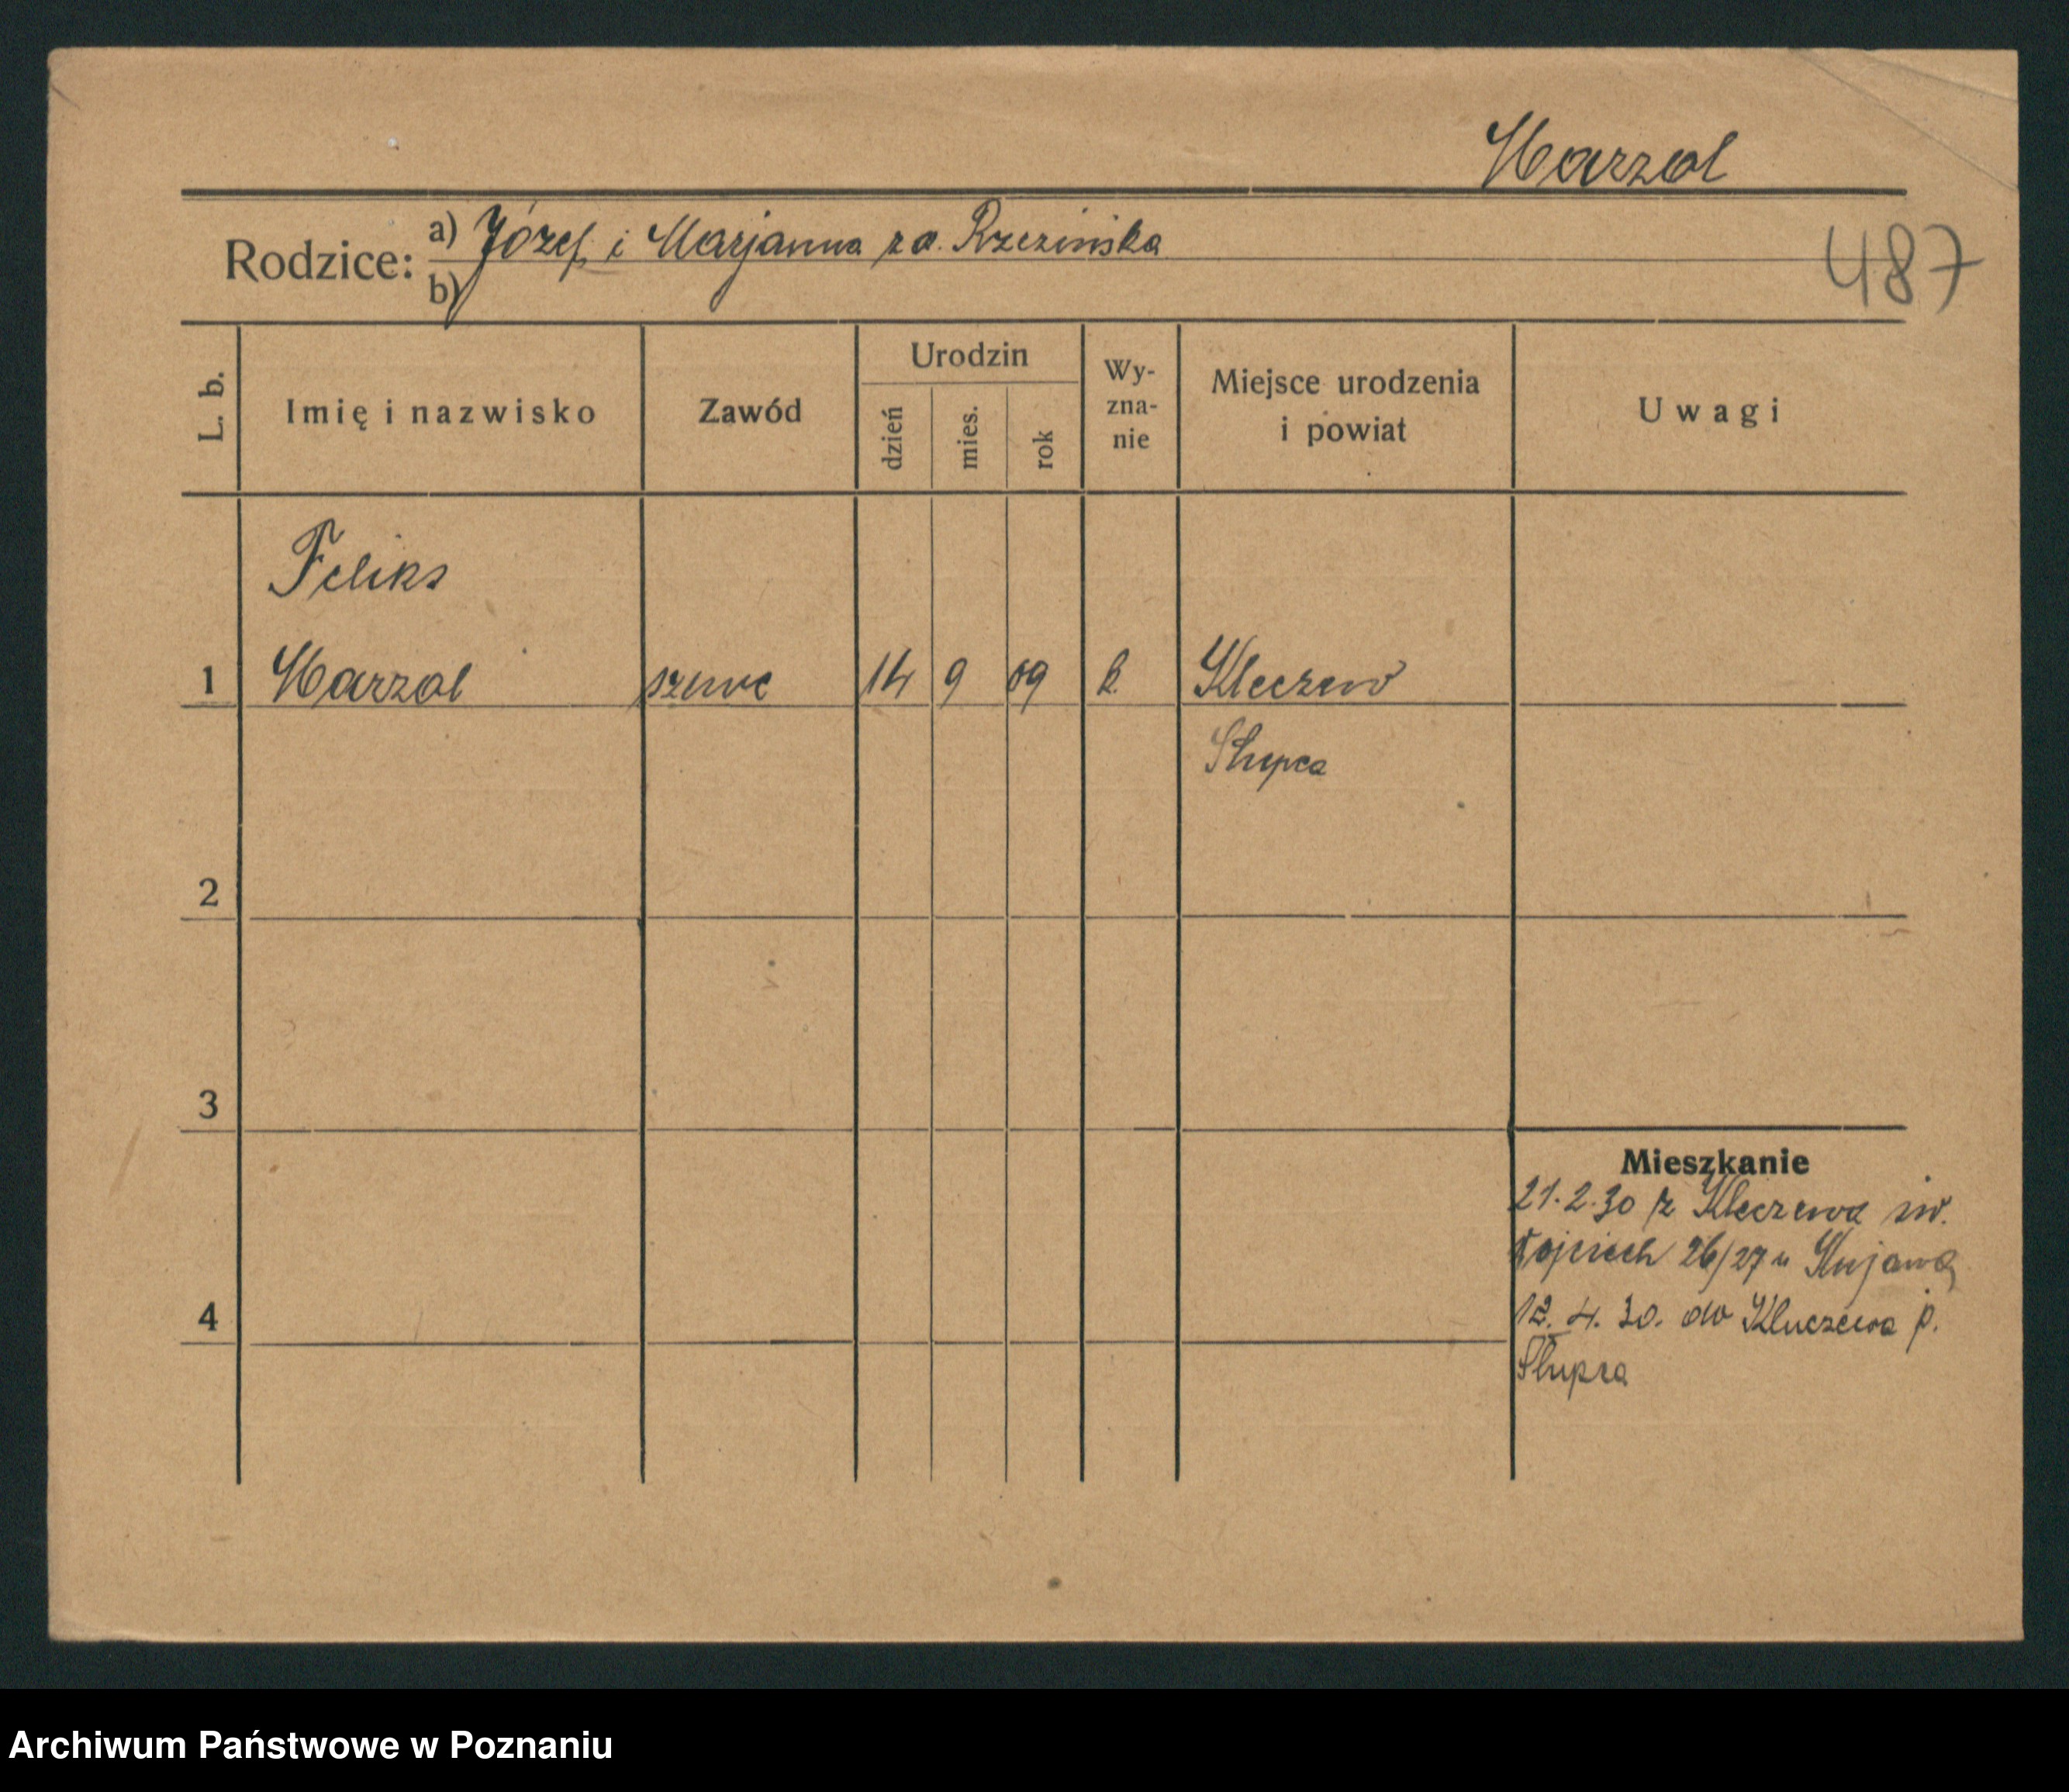 Marzol
Rodzice: a) Józef i Marjanna zd. Rzezińska
b)
487
L. b. Imię i nazwisko Zawód Urodzin dzień mies. rok Wy-zna-nie Miejsce urodzenia i powiat Uwagi
Feliks
1 Marzol szewc 14 9 09 k. Kleczew
Słupca
2
3
Mieszkanie
21.2.30 z Kleczewa św.
Wojciech 26/27 u Kujawa
4
12.4.30. do Kluczewa p.
Słupca
Archiwum Państwowe w Poznaniu